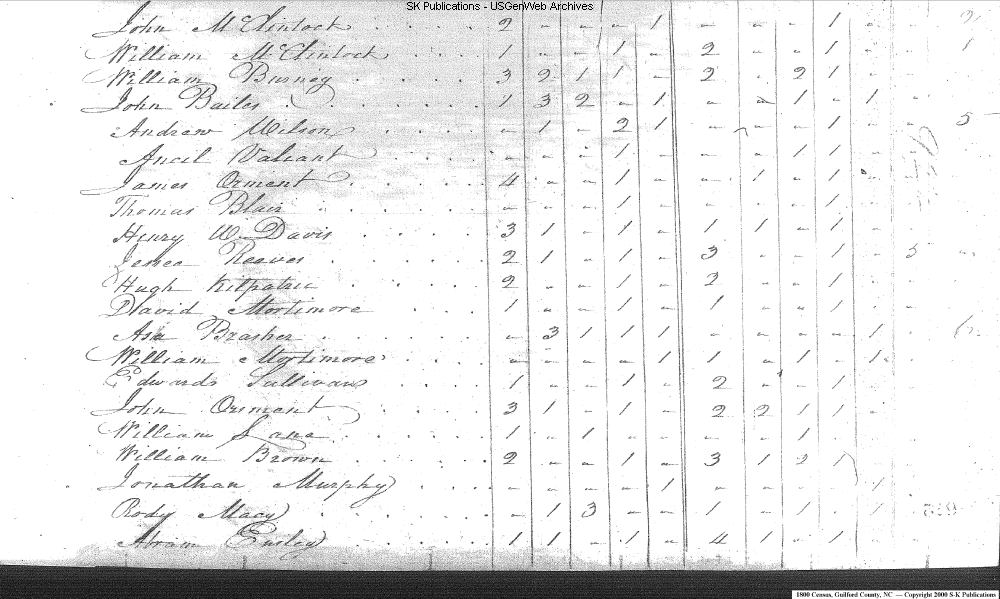 SK Publications - USGenWeb Archives
John McClintock 2 - - - 1 - - - 1 - - 2
William McClintock 1 - - 1 - 2 - - 1 - - 1
William Busney 3 2 1 1 - 2 . 2 1 - -
John Bailes 1 3 2 - 1 - - 1 - 1 -
Andrew Wilson - 1 - 2 1 - - - 1 - - 5
Ancil Valiant - - - 1 - - - 1 1 - -
James Orment 4 - - 1 - - 1 - 1 - -
Thomas Blair - - - 1 - - - - 1 - -
Henry W Davis 3 1 - 1 - 1 1 - 1 - -
Reaves 2 1 - 1 - 3 - - 1 - 5 -
Hugh Kilpatric 2 - - 1 - 2 - - 1 - -
David Mortimore 1 - - 1 - 1 - - 1 - -
Asa Brasher - 3 1 1 1 - - - - 1 -
William Mortimore - - - - 1 1 - 1 - 1 -
Edwards Sullivans 1 - - 1 - 2 - - 1 -
John Orment 3 1 - 1 - 2 2 1 1 -
William Lane 1 - 1 - - - - - 1
William Brown 2 - - 1 - 3 1 2 1
Jonathan Murphy - - - - 1 - - - - 1
Body Macy - 1 3 - - 1 - - 1 - 1
Abram Emley 1 1 - 1 - 4 1 - 1 -
1800 Census, Guilford County, NC — Copyright 2000 S-K Publications